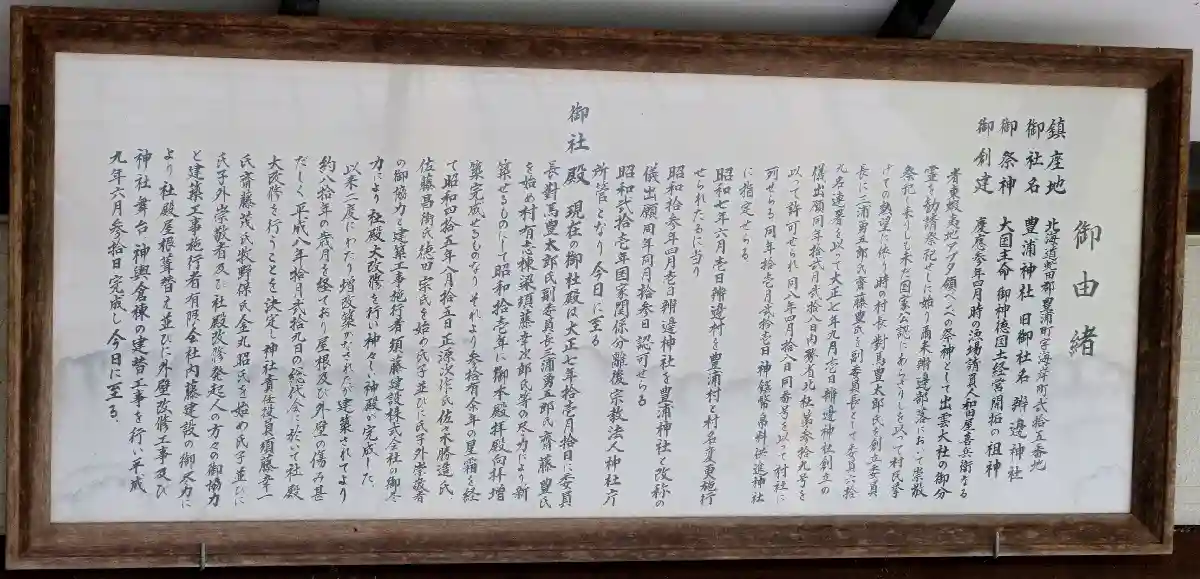 御由緒
鎮座地 北海道虻田郡豊浦町字海岸町弐拾五番地
御社名 豊浦神社 旧御社名 辨邊神社
御祭神 大国主命 御神徳国土経営開拓の祖神
御創建 慶應参年四月時の漁場請負人和田屋喜兵衛なる
者東蝦夷地アブタ領ベンベの祭神として出雲大社の御分
霊を勧請祭祀せしに始り爾来辨邊部落において崇敬
祭祀し来りしも未だ国家公認にあらざりしを以つて村民挙
げての熱望に依り時の村長對馬豊太郎氏を創立委員
長に三浦勇五郎氏齋藤豊氏を副委員長として委員六拾
九名連署を以つて大正七年九月壱日辨邊神社創立の
儀出願同年拾弐月弐拾八日内務省北社第参拾九号を
以つて許可せられ同八年四月拾八日同番号を以つて村社に
列せらる同年拾壱月弐拾壱日神饌幣帛料供進神社
に指定せらる
昭和七年六月壱日辨邊村を豊浦村と村名変更施行
せられたるに当り
昭和拾参年四月壱日辨邊神社を豊浦神社と改称の
儀出願同年同月拾参日認可せらる
昭和弐拾壱年国家関係分離後宗教法人神社庁
所管となり今日に至る
御社殿 現在の御社殿は大正七年拾壱月拾日に委員
長對馬豊太郎氏副委員長三浦勇五郎氏齋藤豊氏
を始め村有志棟梁須藤幸次郎氏等の尽力により新
築せるものにして昭和拾壱年に御本殿拝殿向拝増
築完成せるものなりそれより参拾有余年の星霜を経
て昭和四拾五年八月拾五日正源次浩氏佐々木勝造氏
佐藤昌衛氏徳田宗氏を始め氏子並びに氏子外崇敬者
の御協力と建築工事施行者須藤建設株式会社の御尽
力により社殿大改修を行い神々しい神殿が完成した
以来二度にわたり増改築がなされたが建築されてより
約八拾年の歳月を経ており屋根及び外壁の傷み甚
だしく平成八年拾月弐拾九日の総代会に於いて社殿
大改修を行うことを決定し神社責任役員須藤幸一
氏齋藤茂氏牧野保氏金丸昭氏を始め氏子並びに
氏子外崇敬者及び社殿改修発起人の方々の御協力
と建築工事施行者有限会社内藤建設の御尽力に
より社殿屋根葺替え並びに外壁改修工事及び
神社舞台神輿倉棟の建替工事を行い平成
九年六月参拾日完成し今日に至る